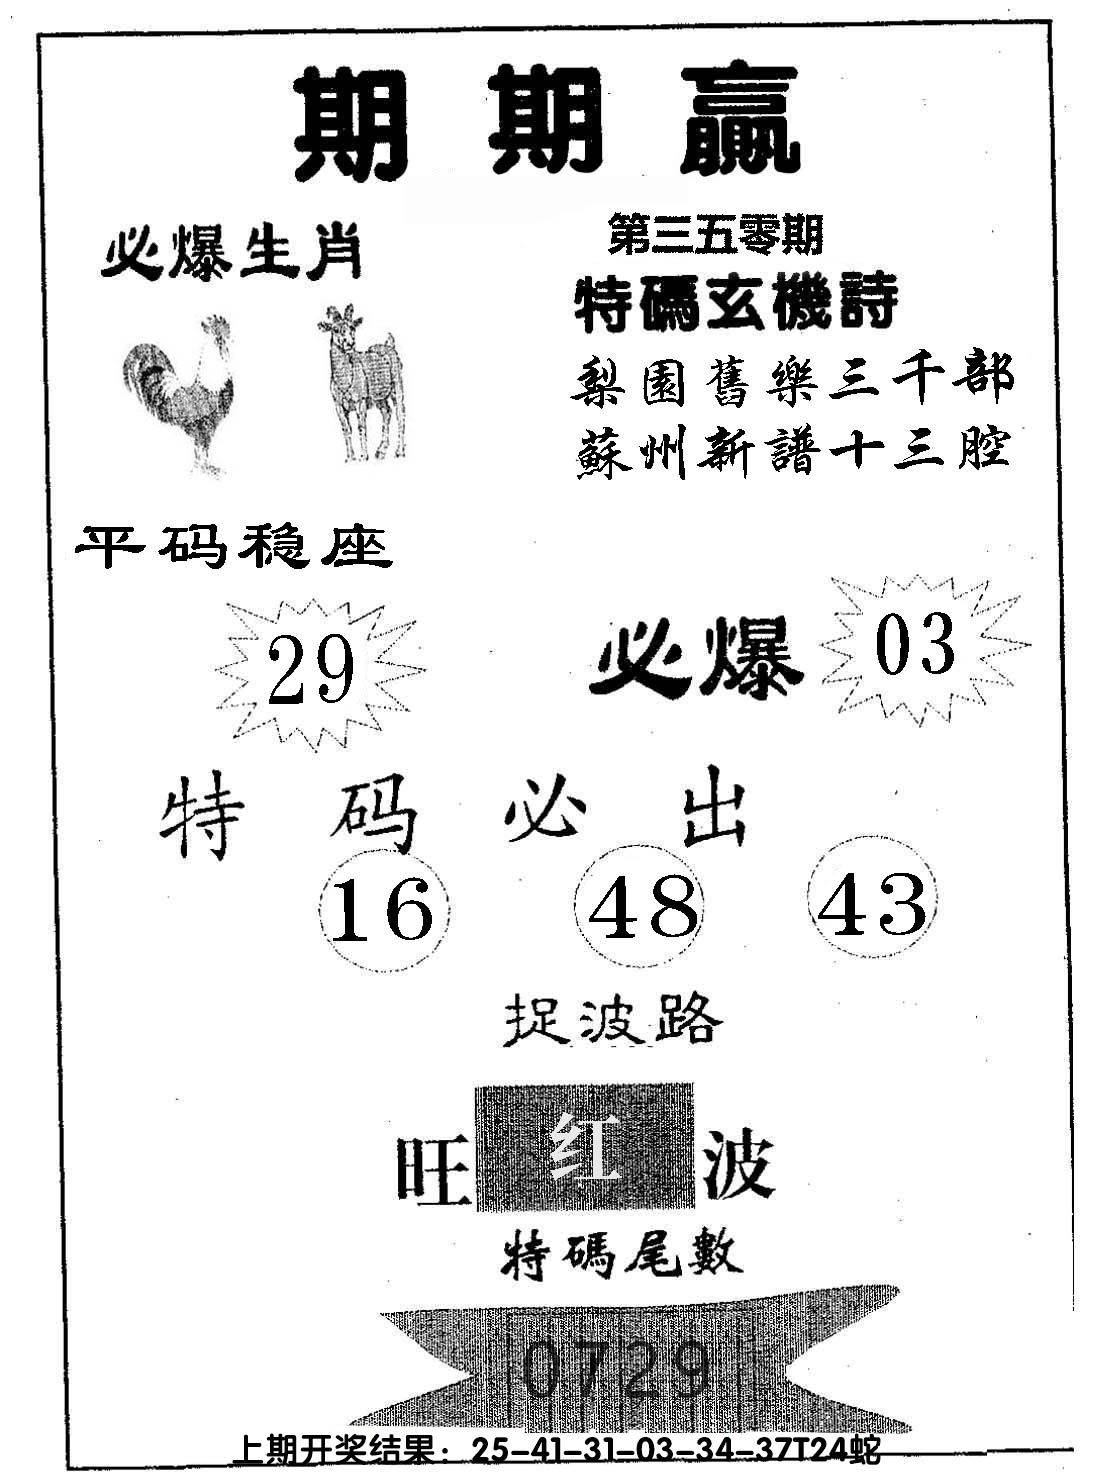 期期贏
必爆生肖
第三五零期
特碼玄機詩
梨園舊樂三千部
蘇州新譜十三腔
平码稳座
29
必爆 03
特码必出
16 48 43
捉波路
旺红波
特碼尾數
0729
上期开奖结果：25-41-31-03-34-37T24蛇